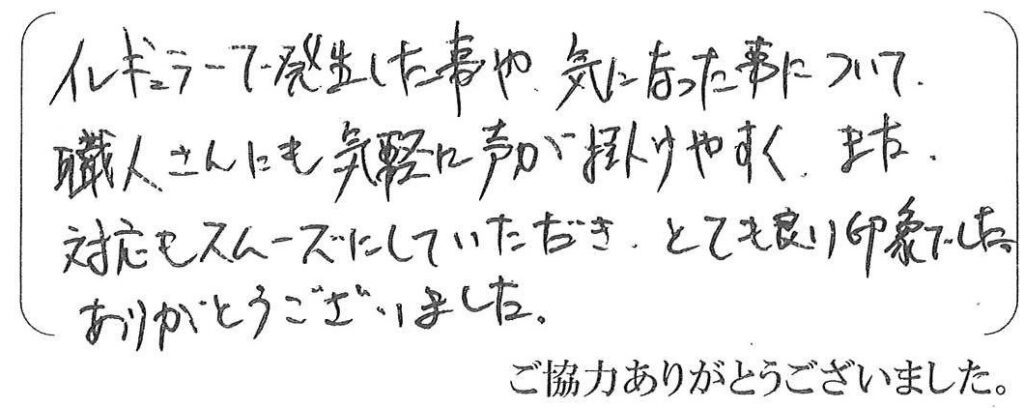 イレギュラーで発生した事や、気になった事について、
職人さんにも気軽に声が掛けやすく、また、
対応もスムーズにしていただき、とても良い印象でした。
ありがとうございました。
ご協力ありがとうございました。